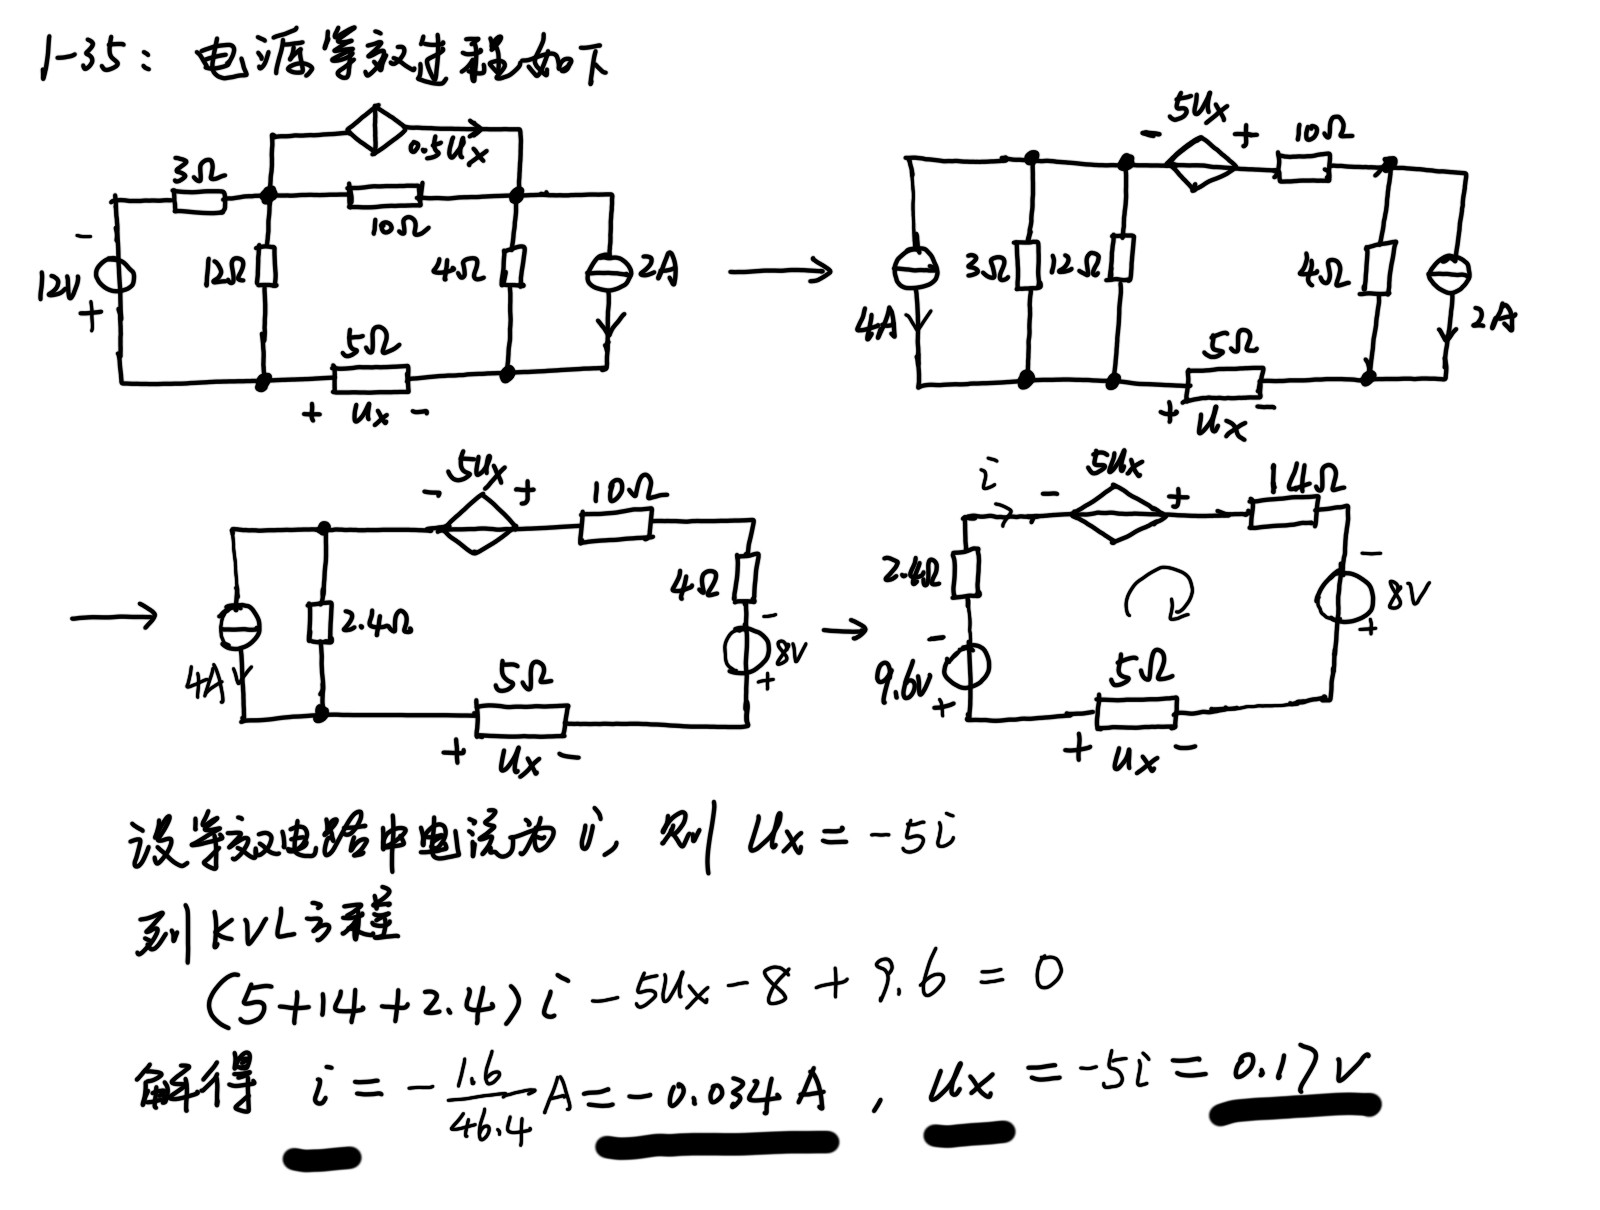 1-35： 电源等效过程如下
0.5Ux
3Ω
10Ω
- 12V +
12Ω
4Ω
2A
5Ω
+ Ux -
- 5Ux +
10Ω
4A
3Ω
12Ω
4Ω
2A
5Ω
+ Ux -
- 5Ux +
10Ω
4A
2.4Ω
4Ω
- 8V +
5Ω
+ Ux -
i
- 5Ux +
14Ω
2.4Ω
- 9.6V +
- 8V +
5Ω
+ Ux -
设等效电路中电流为 i, 则 Ux = -5i
列KVL方程
(5+14+2.4) i - 5Ux - 8 + 9.6 = 0
解得 i = - 1.6/46.4 A = -0.034 A , Ux = -5i = 0.17 V